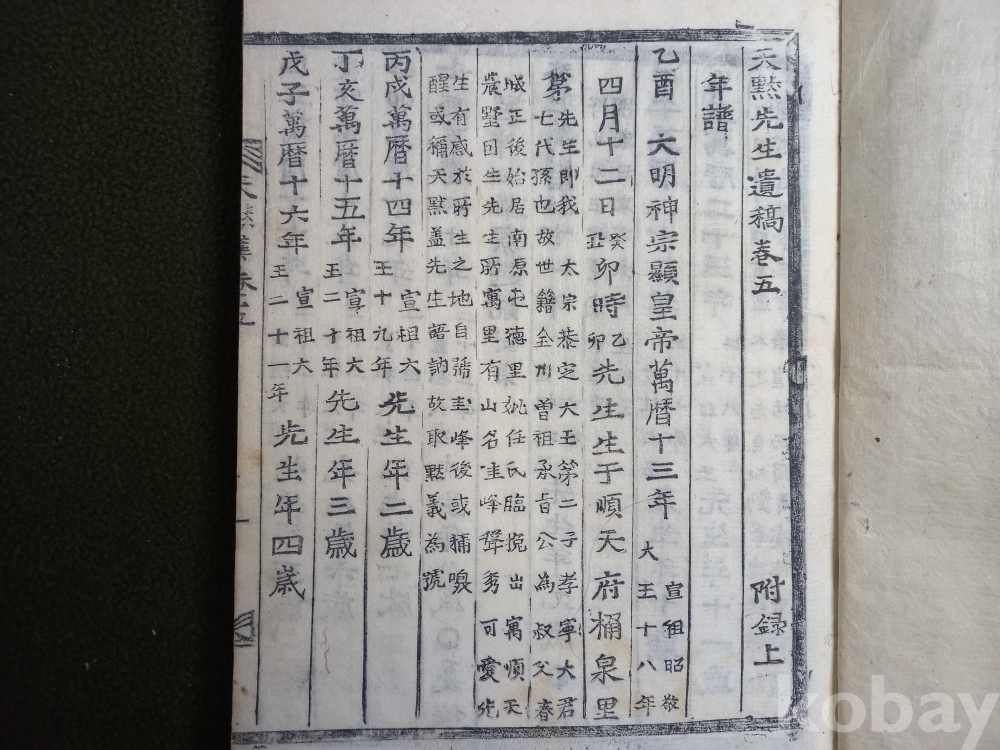 天黙先生遺稿卷五 附録上
年譜
乙酉 大明神宗顯皇帝萬曆十三年 宣祖昭敬
大王十八年
四月十二日 癸
丑 卯時 乙
卯 先生生于順天府桶泉里
先生即我 太宗恭定大王第二子孝寧大君
第七代孫也故世籍全州曾祖承旨公為叔父春
城正後始居南原屯德里妣任氏臨挽出寓順天
農墅回生先生所寓里有山名圭峰聳秀可愛先
生有感於所生之地自號圭峰後或稱
醒或稱天黙盖先生語訥故取黙義為號
丙戌萬曆十四年 宣祖六
王十九年 先生年二歲
丁亥萬曆十五年 宣祖大
王二十年 先生年三歲
戊子萬曆十六年 宣祖六
王二十一年 先生年四歲
天黙 卷之五
一
kobay